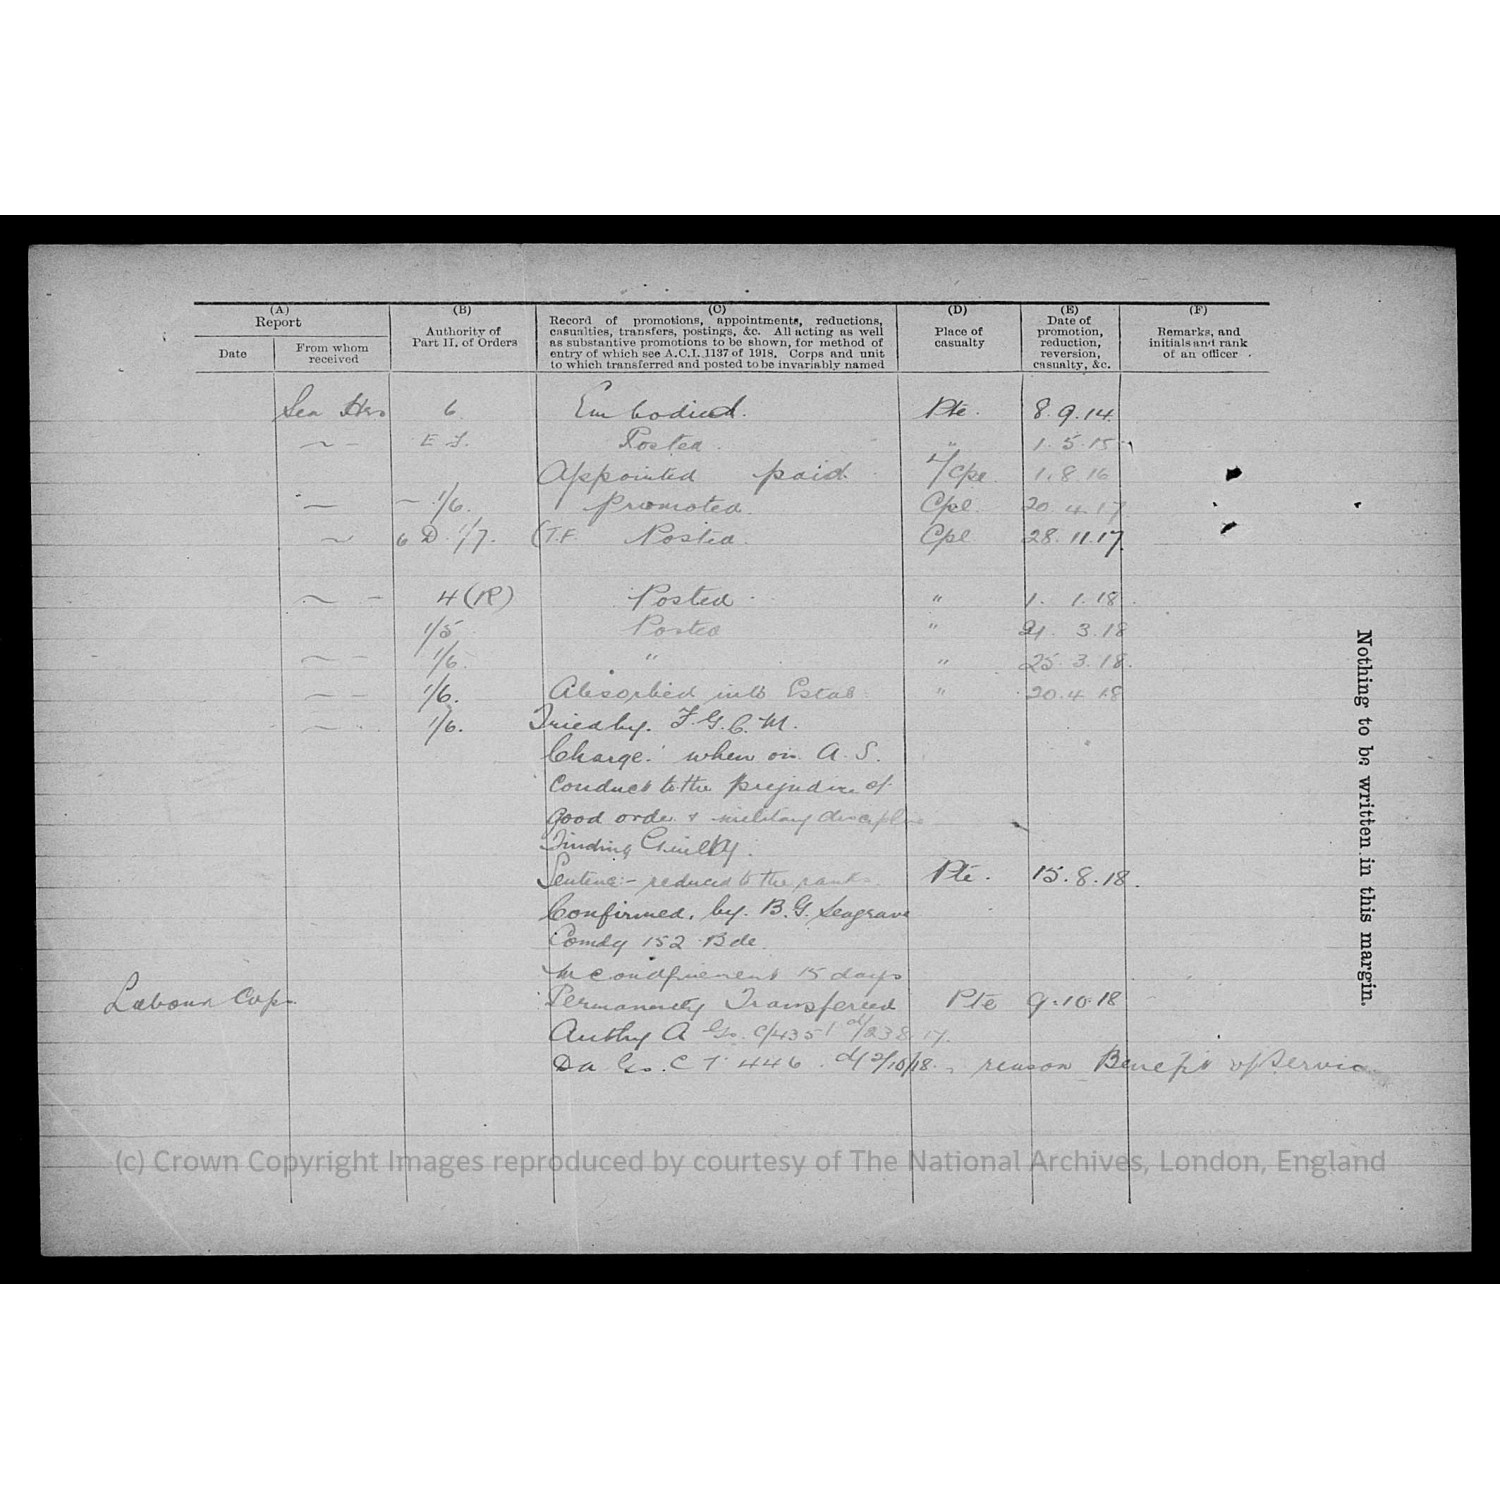 (A)
Report
Date
From whom received
(B)
Authority of Part II. of Orders
(C)
Record of promotions, appointments, reductions,
casualties, transfers, postings, &c. All acting as well
as substantive promotions to be shown, for method of
entry of which see A.C.I. 1137 of 1918. Corps and unit
to which transferred and posted to be invariably named
(D)
Place of casualty
(E)
Date of promotion, reduction, reversion, casualty, &c.
(F)
Remarks, and initials and rank of an officer
Sea Hrs 6 Embodied. Pte. 8.9.14
Posted. " 1.5.15
Appointed paid L/Cpl 1.8.16
1/6. Promoted. Cpl. 20.4.17
6 D. 1/7. (T.F. Posted. Cpl 28.11.17
4 (R) Posted " 1.1.18
1/5 Posted " 21.3.18
1/6. " " 25.3.18.
1/6. Absorbed into Estab " 20.4.18
1/6. Tried by. F.G.C.M.
Charge: when on A.S.
conduct to the prejudice of
good order & military discipline
Finding Guilty.
Sentence:- reduced to the ranks. Pte. 15.8.18.
Confirmed. by. B.G. Seagrave
Comdg 152 Bde.
In confinement 15 days
Labour Corps Permanently Transferred Pte 9.10.18
Authy A Gs. C/4351 d/23 8 17.
Da Gs. C T 446. d/2/10/18. reason Benefit of Service
Nothing to be written in this margin.
(c) Crown Copyright Images reproduced by courtesy of The National Archives, London, England